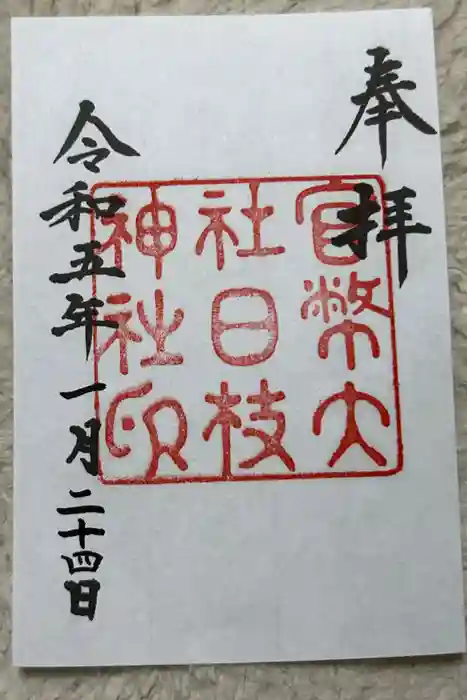 奉拝
官幣大
社日枝
神社印
令和五年一月二十四日